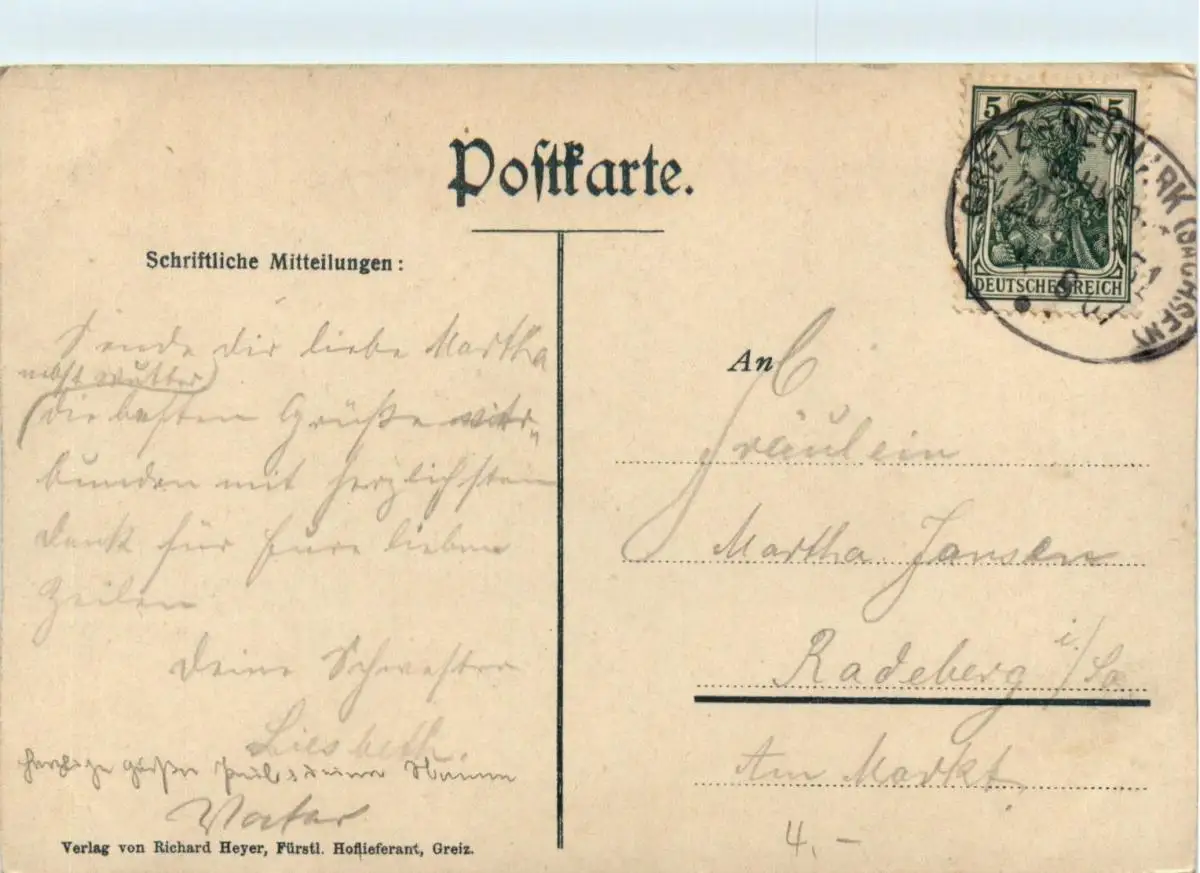 Postkarte.
Schriftliche Mitteilungen:
Sende dir liebe Martha
nebst Mutter
die besten Grüße ver„
bunden mit herzlichsten
Dank für Eure lieben
Zeilen
Deine Schwester
Liesbeth.
Herzliche Grüße
Vater
Verlag von Richard Heyer, Fürstl. Hoflieferant, Greiz.
5 5
DEUTSCHES REICH
GREIZ-NEUMARK (SACHSEN)
An
Fräulein
Martha Jansen
Radeberg i/Sa.
Am Markt.
4.-